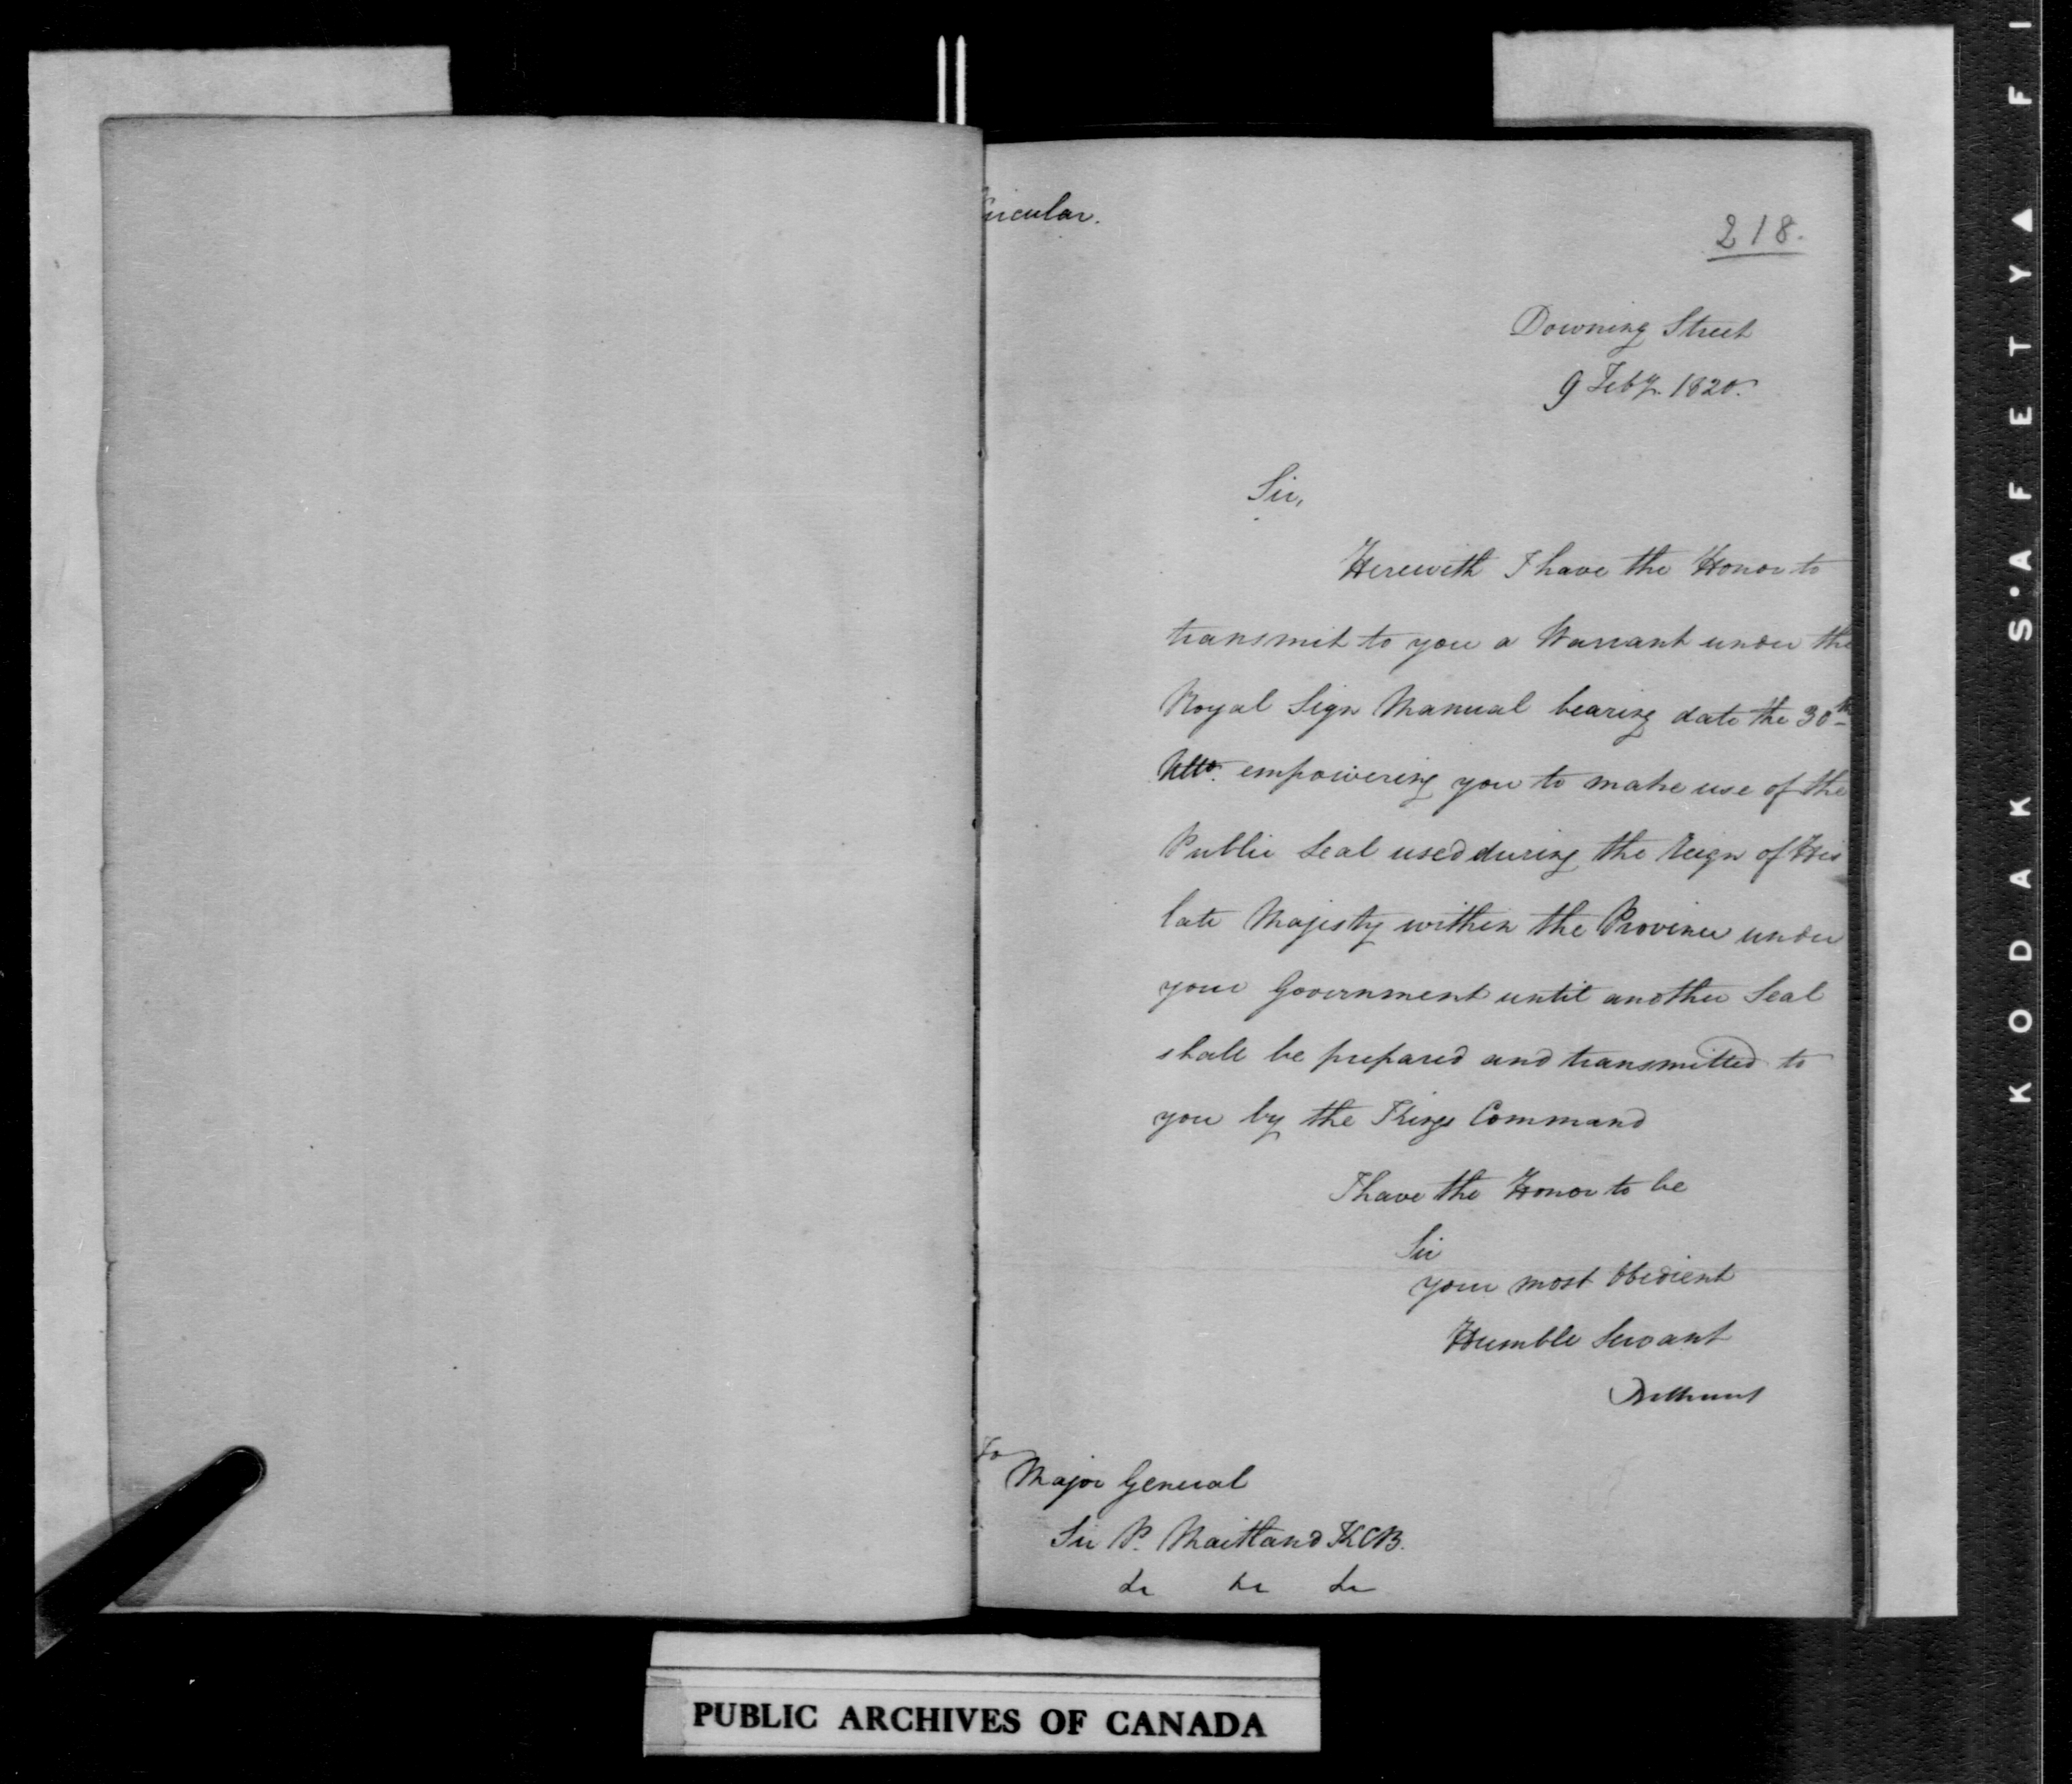 Circular.
218.
Downing Street
9 Feby. 1820.
Sir,
Herewith I have the Honor to
transmit to you a Warrant under the
Royal Sign Manual bearing date the 30th
Ulto. empowering you to make use of the
Public Seal used during the Reign of His
late Majesty within the Province under
your Government until another Seal
shall be prepared and transmitted to
you by the Kings Command
I have the Honor to be
Sir
your most Obedient
Humble Servant
Bathurst
To
Major General
Sir P. Maitland KCB.
&c &c &c
PUBLIC ARCHIVES OF CANADA
KODAK S·AFETY▲ FI